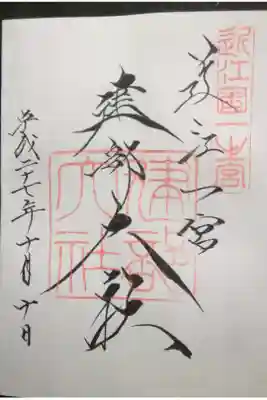 近江國一宮
近江一宮
建部大社
建部大社
平成二十七年十月十日